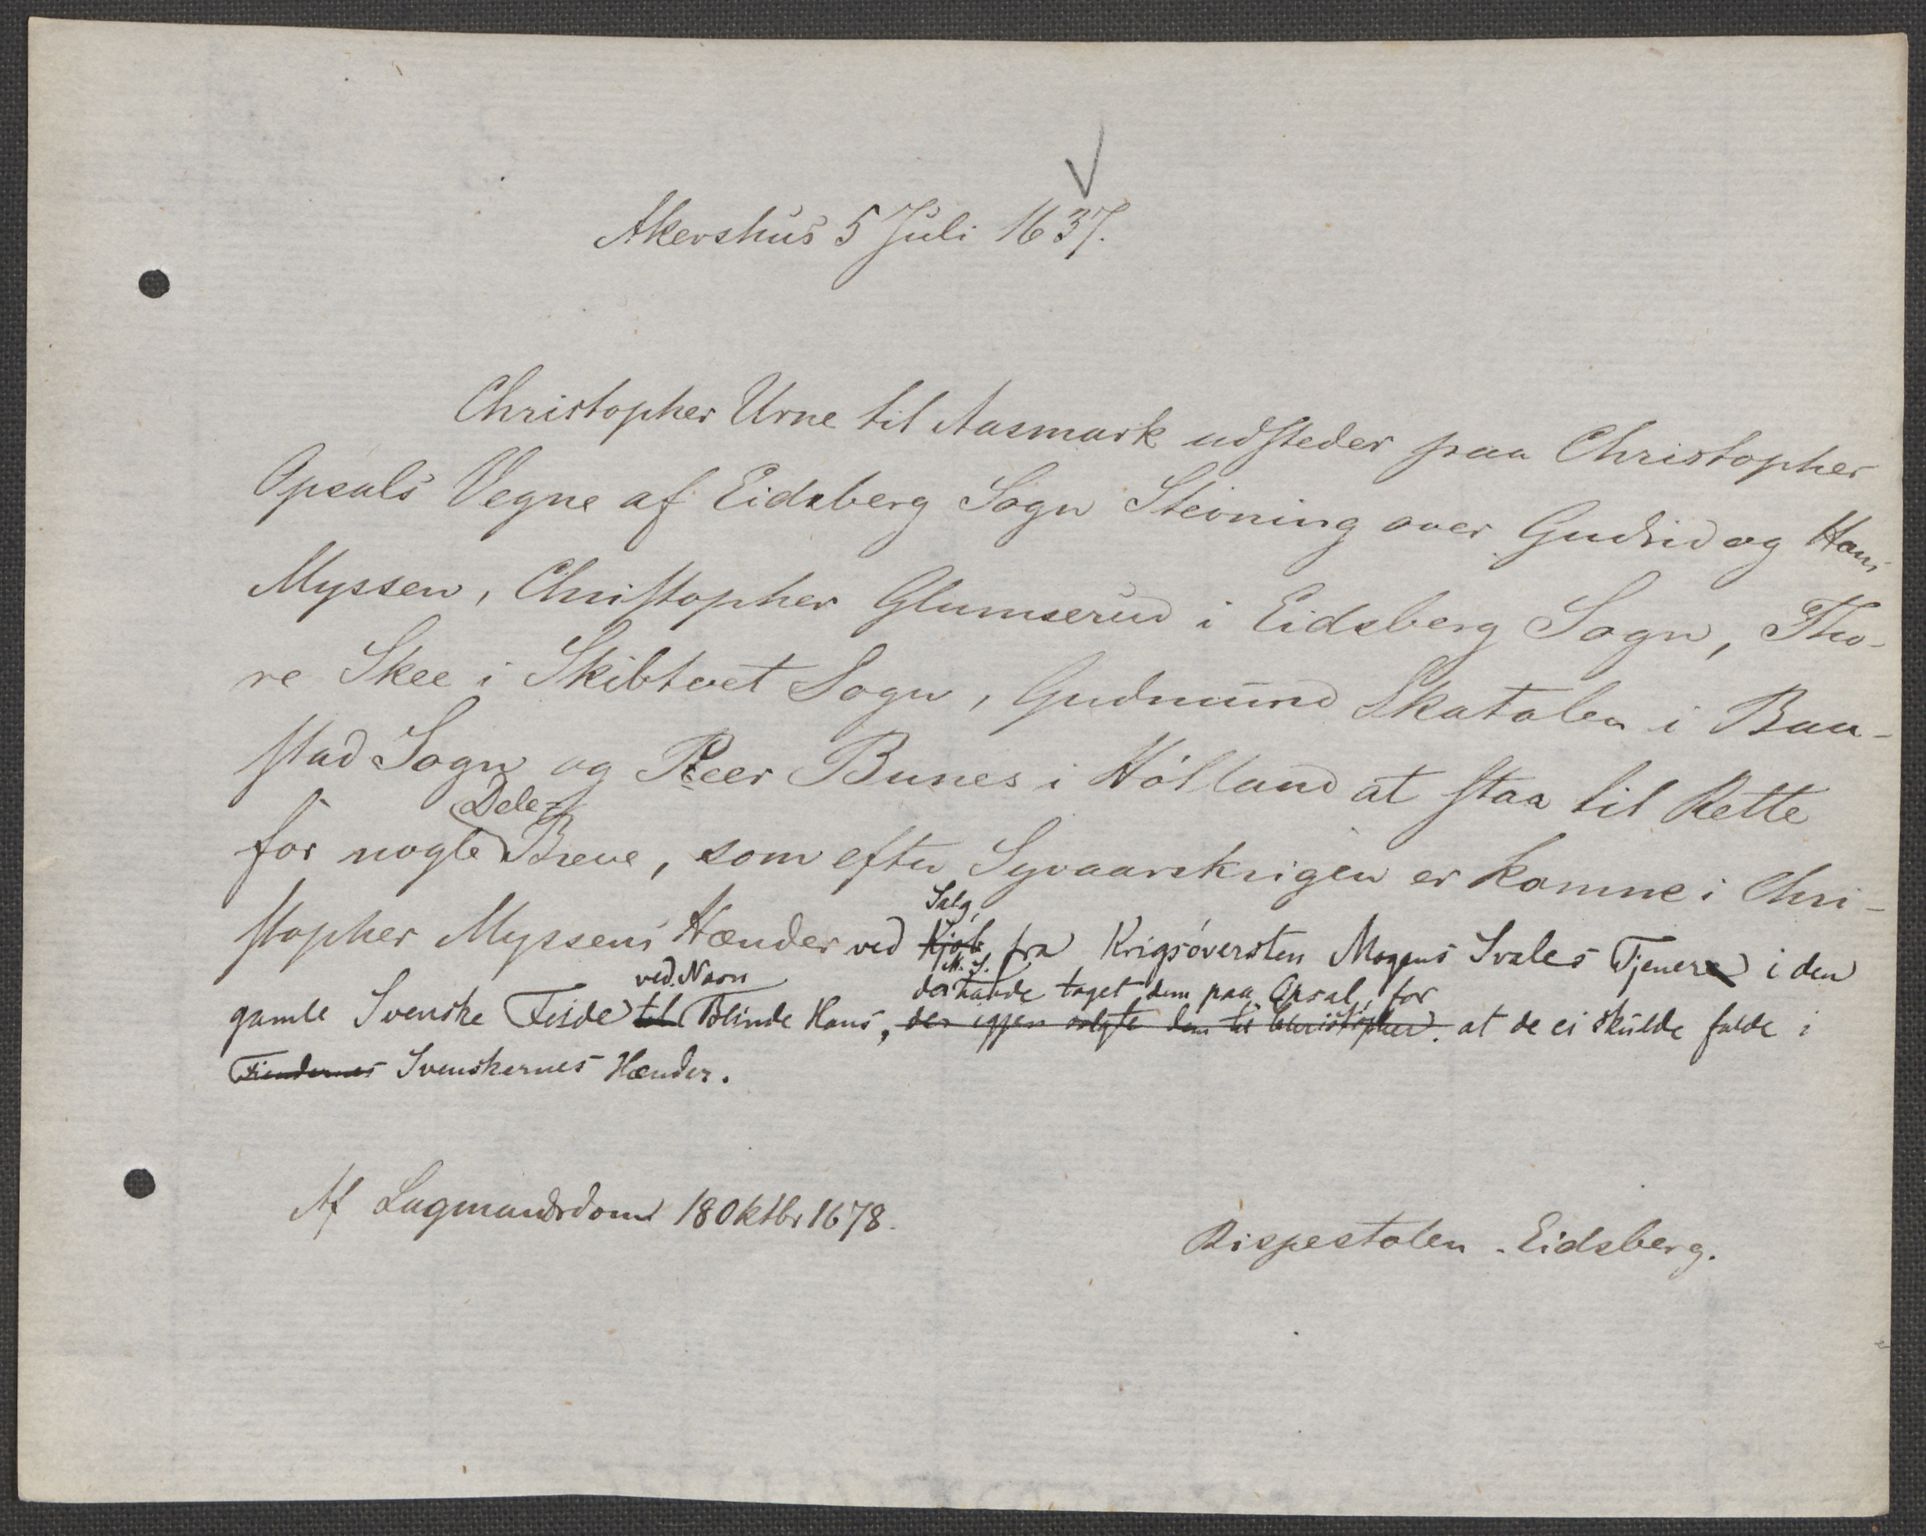 Akershus 5 Juli 1637.
Christopher Urne til Aasmark udsteder paa Christopher
Opsals Vegne af Eidsberg Sogn Stevning over Gudrid og Hans
Myssen, Christopher Glumserud i Eidsberg Sogn, Tho-
re Skee i Skibtvet Sogn, Gudmund Skatolen i Baa-
stad Sogn og Peer Bunes i Hölland at staa til Rette
Dele-
for nogle Breve, som efter Syvaarskrigen er komne i Chri-
Salg,
stopher Myssens Hænder ved Kjøb fra Krigsöversten Mogens Svales Tjenere i den
ved Navn M. S. der havde taget dem paa Opsal, for
gamle Svenske Feide til Blinde Hans, der igjen solgte dem til Christopher. at de ei skulde falde i
Fiendernes Svenskernes Hænder.
Af Lagmandsdom 18 Oktbr 1678.
Rispestolen. Eidsberg.